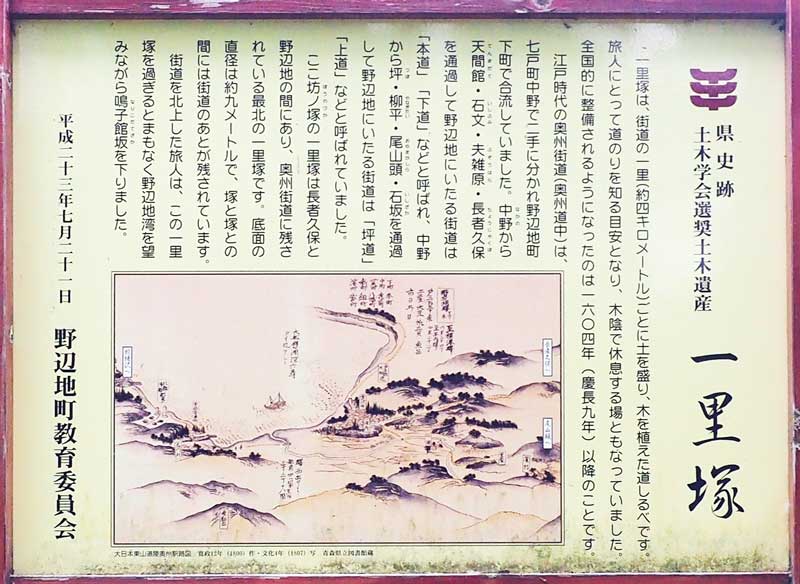 県史跡
土木学会選奨土木遺産
一里塚
一里塚は、街道の一里（約四キロメートル）ごとに土を盛り、木を植えた道しるべです。
旅人にとって道のりを知る目安となり、木陰で休息する場ともなっていました。
全国的に整備されるようになったのは一六〇四年（慶長九年）以降のことです。
江戸時代の奥州街道（奥州道中）は、
七戸町中野で二手に分かれ野辺地町
下町で合流していました。中野から
天間館・石文・夫雑原・長者久保
を通過して野辺地にいたる街道は
「本道」「下道」などと呼ばれ、中野
から坪・柳平・尾山頭・石坂を通過
して野辺地にいたる街道は「坪道」
「上道」などと呼ばれていました。
ここ坊ノ塚の一里塚は長者久保と
野辺地の間にあり、奥州街道に残さ
れている最北の一里塚です。底面の
直径は約九メートルで、塚と塚との
間には街道のあとが残されています。
街道を北上した旅人は、この一里
塚を過ぎるとまもなく野辺地湾を望
みながら鳴子館坂を下りました。
平成二十三年七月二十一日
野辺地町教育委員会
大日本東山道陸奥州駅路図 寛政12年（1800）作・文化4年（1807）写 青森県立図書館蔵